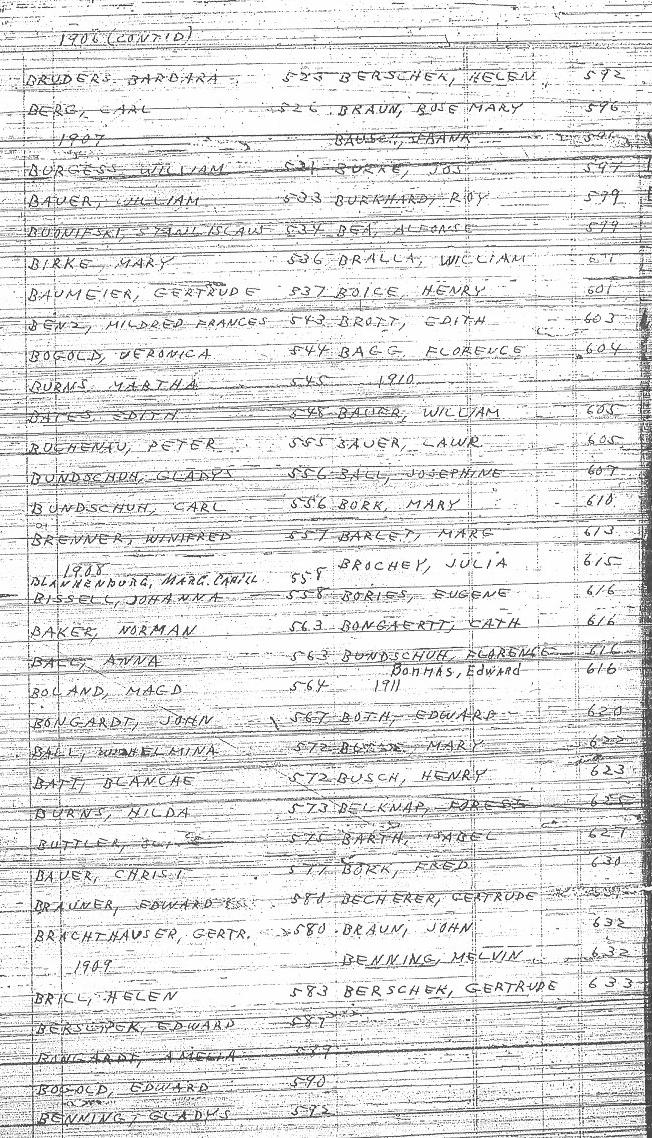 1906 (CONT'D)
BRUDERS BARBARA 525
BERG, CARL 526
1907
BURGESS, WILLIAM 531
BAUER, WILLIAM 533
BUDNIEFSKI, STANLISLAUS 534
BIRKE, MARY 536
BAUMEIER, GERTRUDE 537
BENZ, MILDRED FRANCES 543
BOGOLD, VERONICA 544
BURNS, MARTHA 545
BATES, EDITH 548
BUCHENAU, PETER 555
BUNDSCHUH, GLADYS 556
BUNDSCHUH, CARL 556
BRENNER, WINIFRED 557
1908
BLANKENBURG, MARG. CAHILL 558
BISSELL, JOHANNA 558
BAKER, NORMAN 563
BALL, ANNA 563
BOLAND, MAGD 564
BONGARDT, JOHN 567
BALL, WILHELMINA 572
BATT, BLANCHE 572
BURNS, HILDA 573
BUTTLER, 575
BAUER, CHRIST 577
BRAUNER, EDWARD 580
BRACHTHAUSER, GERTR. 580
1909
BRILL, HELEN 583
EDWARD 587
BONGARDT, AMELIA 589
BOGOLD, EDWARD 590
BENNING, GLADYS 592
BERSCHEK, HELEN 592
BRAUN, ROSE MARY 596
FRANK
BURKE, JOS 597
BURKHARD, ROY 599
BEA, ALFONSE 599
BRALLA, WILLIAM
BOICE, HENRY 601
BROTT, EDITH 603
BAGG FLORENCE 604
1910
BAUER, WILLIAM 605
BAUER, LAWR 605
BALL, JOSEPHINE 607
BORK, MARY 610
BARLET, MARG 613
BROCHEY, JULIA 615
BORIES, EUGENE 616
BONGAERTT, CATH 616
BUNDSCHUH, FLORENCE 616
BONMAS, Edward 616
1911
BOTH, EDWARD 620
MARY 622
BUSCH, HENRY 623
BELKNAP, FOREST 625
BARTH, ISABEL 627
BORK, FRED 630
BECHERER, GERTRUDE
BRAUN, JOHN 632
BENNING, MELVIN 632
BERSCHEK, GERTRUDE 633